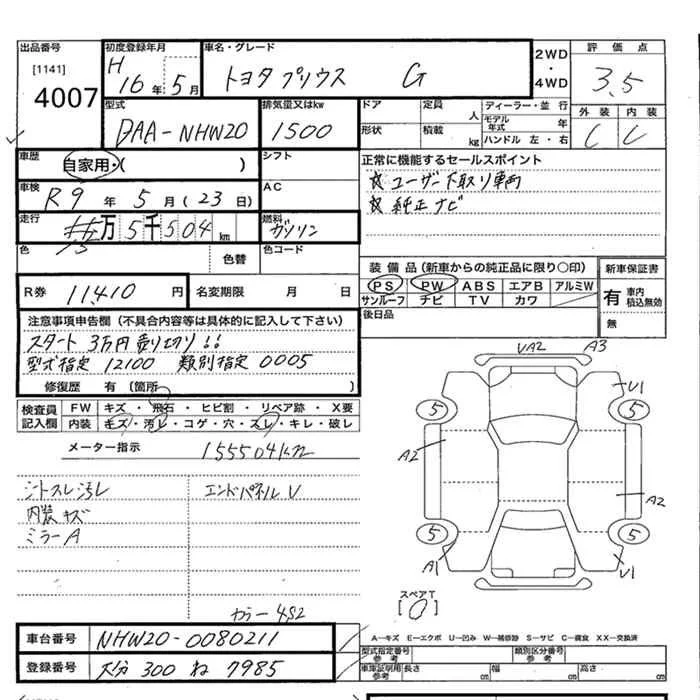 出品番号
[1141]
4007
初度登録年月
H 16年 5月
車名・グレード
トヨタ プリウス G
2WD
・
4WD
評価点
3.5
外装 内装
C C
型式
DAA-NHW20
排気量又はkw
1500
ドア 定員 人
形状 積載 kg
ディーラー・並行
モデル年式 年
ハンドル 左・右
車歴
自家用・( )
シフト
車検
R9年 5月(23日)
AC
走行
万5千504km
15
燃料
ガソリン
色 色替
色コード
正常に機能するセールスポイント
☆ユーザー下取り車両
☆純正ナビ
装備品(新車からの純正品に限り〇印)
PS PW ABS エアB アルミW
サンルーフ ナビ TV カワ
後日品
新車保証書
有 車内積込無効
無
R券 11,410円
名変期限 月 日
注意事項申告欄(不具合内容等は具体的に記入して下さい)
スタート 3万円 乗り切り!!
型式指定 12100 類別指定 0005
修復歴 有(箇所
検査員記入欄
FW キズ・飛石・ヒビ割・リペア跡・X要
内装 キズ・汚レ・コゲ・穴・スレ・キレ・破レ
メーター指示 155504km
シートスレ汚レ
内装キズ
ミラーA
エンドパネルV
カラー4S2
VA2 A3
U1
5 5
A2
A2
5 5
A1 U1
スペアT
[0]
A―キズ E―エクボ U―凹み W―補修跡 S―サビ C―腐食 XX―交換済
車台番号 NHW20-0080211
登録番号 大分 300 ね 7985
型式指定番号
参考
類別区分番号
参考
車庫証明用
参考
長さ cm 幅 cm 高さ cm